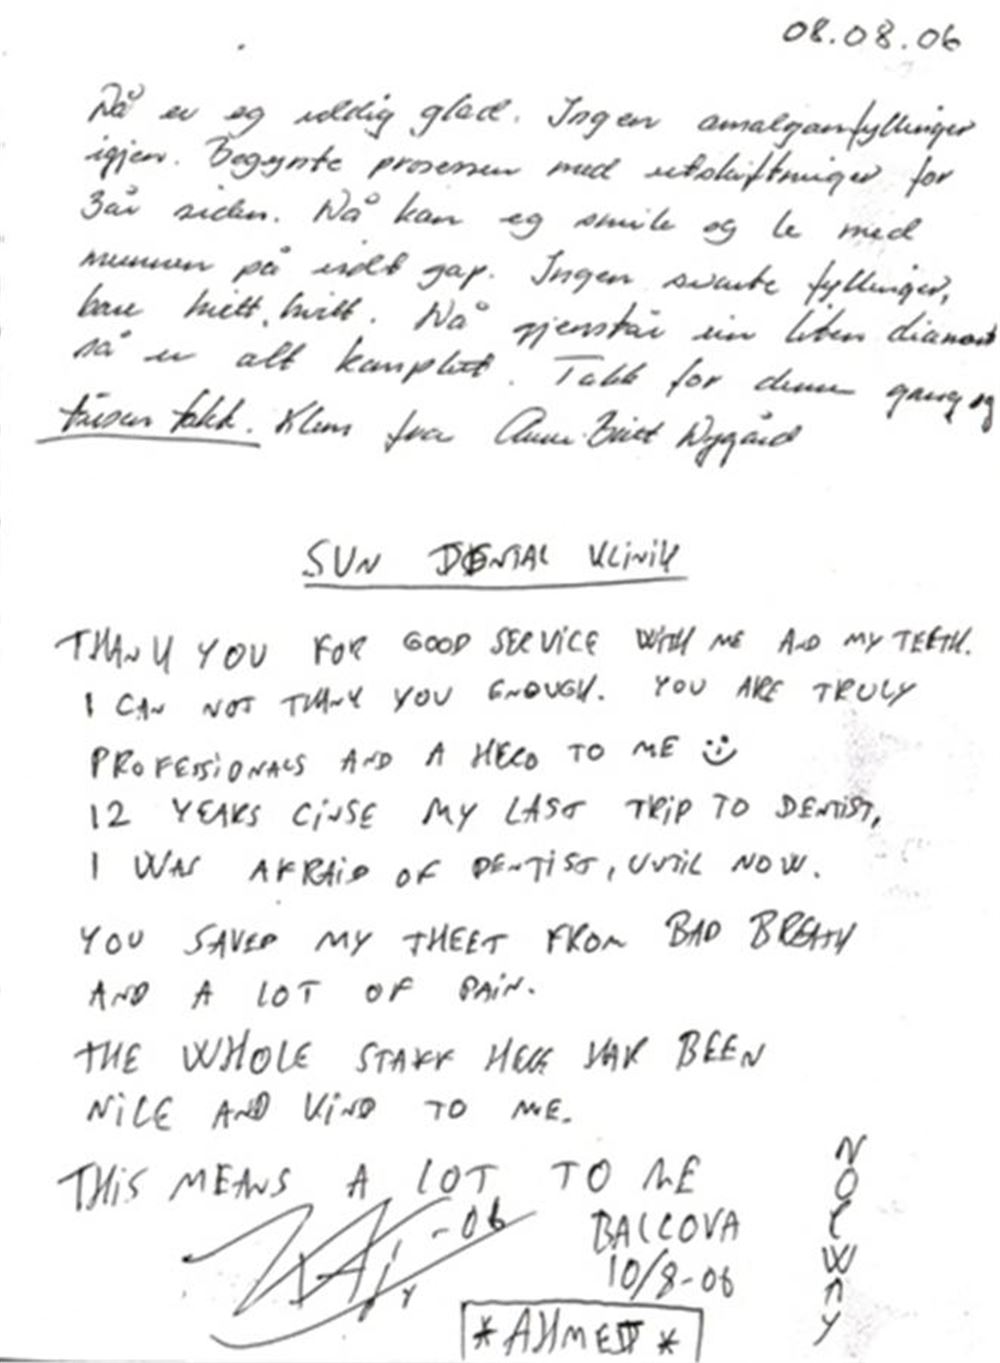 08.08.06
Nå er eg uldig glad. Ingen amalgamfyllinger
igjen. Begynte prosessen med utskiftninger for
3 år siden. Nå kan eg smile og le med
munnen på vidt gap. Ingen svarte fyllinger,
bare hvitt, hvitt. Nå gjenstår ein liten diamant
så er alt komplett. Takk for denne gang og
tusen takk. Klem fra Anne-Britt Nygård
SUN DENTAL KLINIK
THANK YOU FOR GOOD SERVICE WITH ME AND MY TEETH.
I CAN NOT THANK YOU ENOUGH. YOU ARE TRULY
PROFESSIONALS AND A HERO TO ME
12 YEARS CINSE MY LAST TRIP TO DENTIST,
I WAS AFRAID OF DENTIST, UNTIL NOW.
YOU SAVED MY THEET FROM BAD BREATH
AND A LOT OF PAIN.
THE WHOLE STAFF HERE HAR BEEN
NICE AND KIND TO ME.
THIS MEANS A LOT TO ME
-06
BALCOVA
10/8-06
*AHMET*
NORWAY